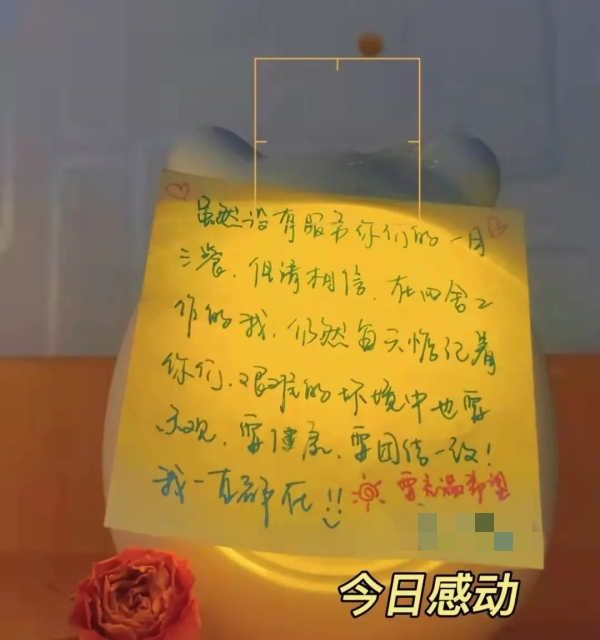 虽然没有服务你们的一日
三餐,但请相信,在四舍工
作的我,仍然每天惦记着
你们,艰难的环境中也要
乐观,要健康,要团结一致!
我一直都在!! 要充满希望
今日感动